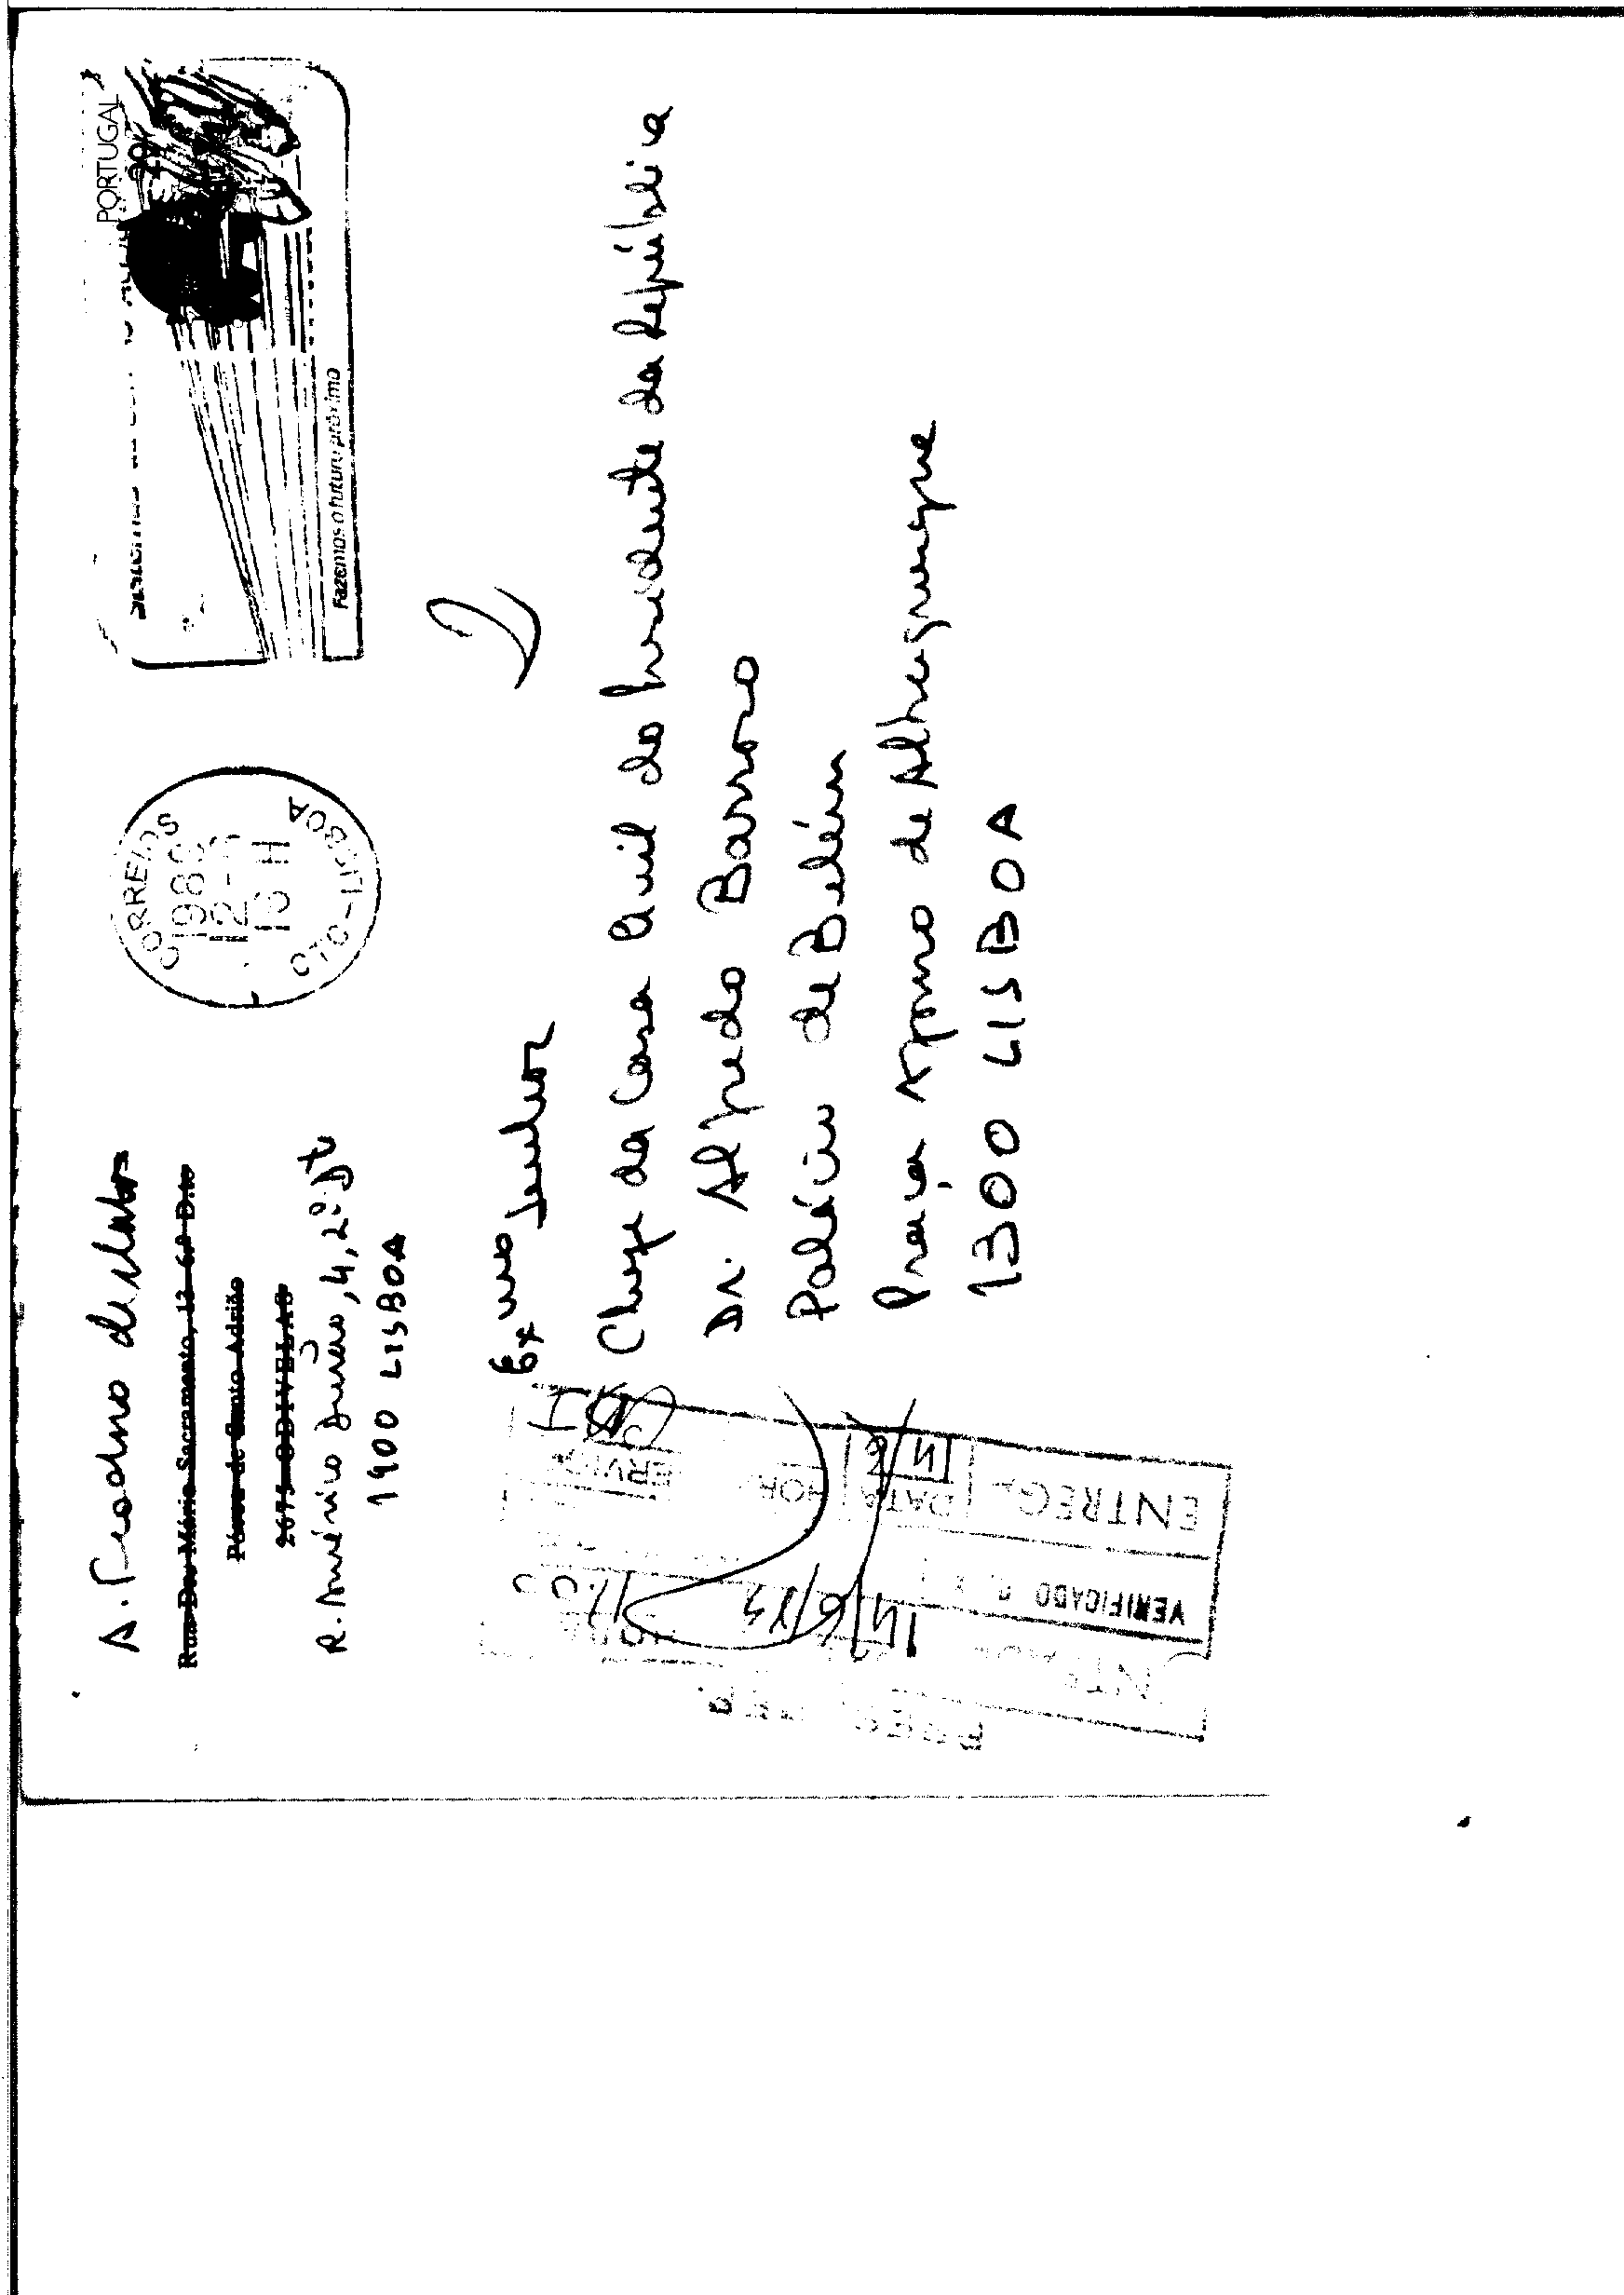 A. Pedro de Matos
Rua Dr. Mário Sacramento, 12-6.º D.to
Póvoa de Santo Adrião
2675 ODIVELAS
R. Américo Durão, 4, 2º Dto
1900 LISBOA
CORREIOS
12-6
16 H
CTC-LISBOA
PORTUGAL
Fazemos o futuro próximo
Exmo Senhor
Chefe da Casa Civil do Presidente da República
Dr. Alfredo Barroso
Palácio de Belém
Praça Afonso de Albuquerque
1300 LISBOA
HORA
VERIFICADO
DATA
ENTREG
14/6